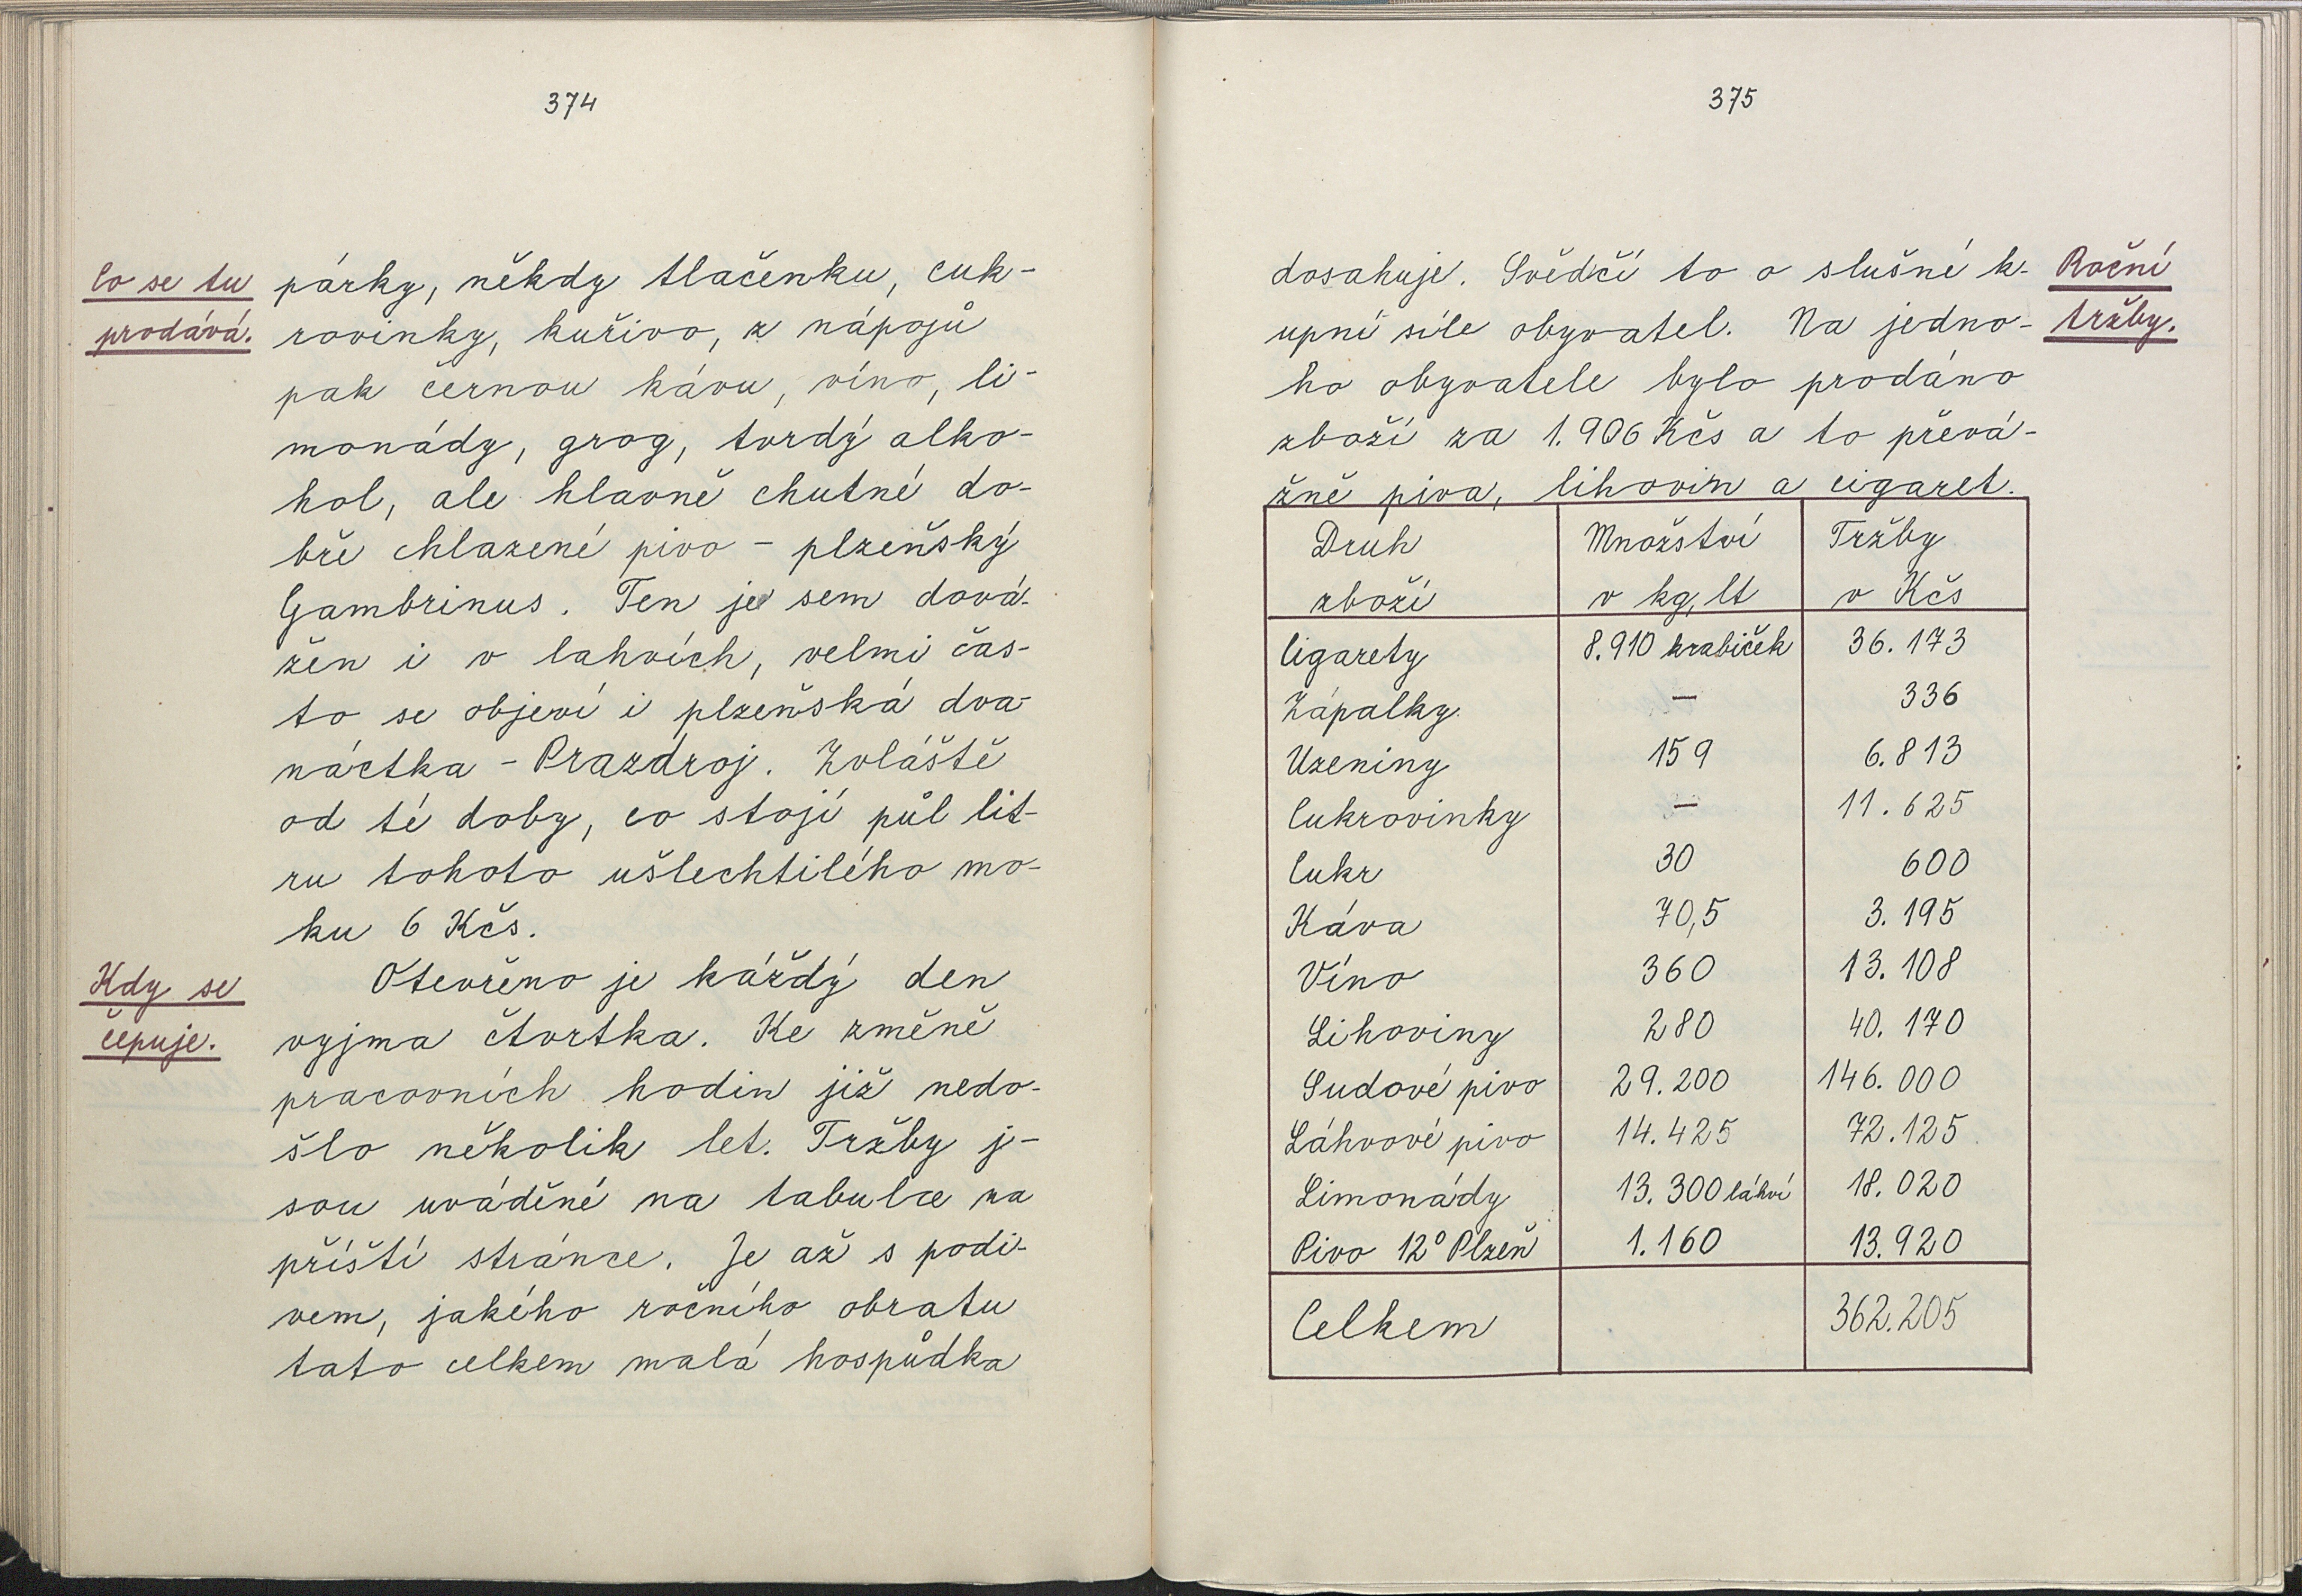 374
Co se tu
prodává.
párky, někdy tlačenku, cuk-
rovinky, kuřivo, z nápojů
pak černou kávu, víno, li-
monády, grog, tvrdý alko-
hol, ale hlavně chutné do-
bře chlazené pivo - plzeňský
Gambrinus. Ten je sem dová-
žen i v lahvích, velmi čas-
to se objeví i plzeňská dva-
náctka - Prazdroj. Zvláště
od té doby, co stojí půl lit-
ru tohoto ušlechtilého mo-
ku 6 Kčs.
Kdy se
čepuje.
Otevřeno je káždý den
vyjma čtvrtka. Ke změně
pracovních hodin již nedo-
šlo několik let. Tržby j-
sou uváděné na tabulce na
příští stránce. Je až s podi-
vem, jakého ročního obratu
tato celkem malá hospůdka
375
dosahuje. Svědčí to o slušné k-
upní síle obyvatel. Na jedno-
ho obyvatele bylo prodáno
zboží za 1.906 Kčs a to převá-
žně piva, lihovin a cigaret.
Roční
tržby.
Druh Množství Tržby
zboží v kg, lt v Kčs
Cigarety 8.910 krabiček 36.173
Zápalky — 336
Uzeniny 159 6.813
Cukrovinky — 11.625
Cukr 30 600
Káva 70,5 3.195
Víno 360 13.108
Lihoviny 280 40.170
Sudové pivo 29.200 146.000
Láhvové pivo 14.425 72.125
Limonády 13.300 láhví 18.020
Pivo 12° Plzeň 1.160 13.920
Celkem 362.205